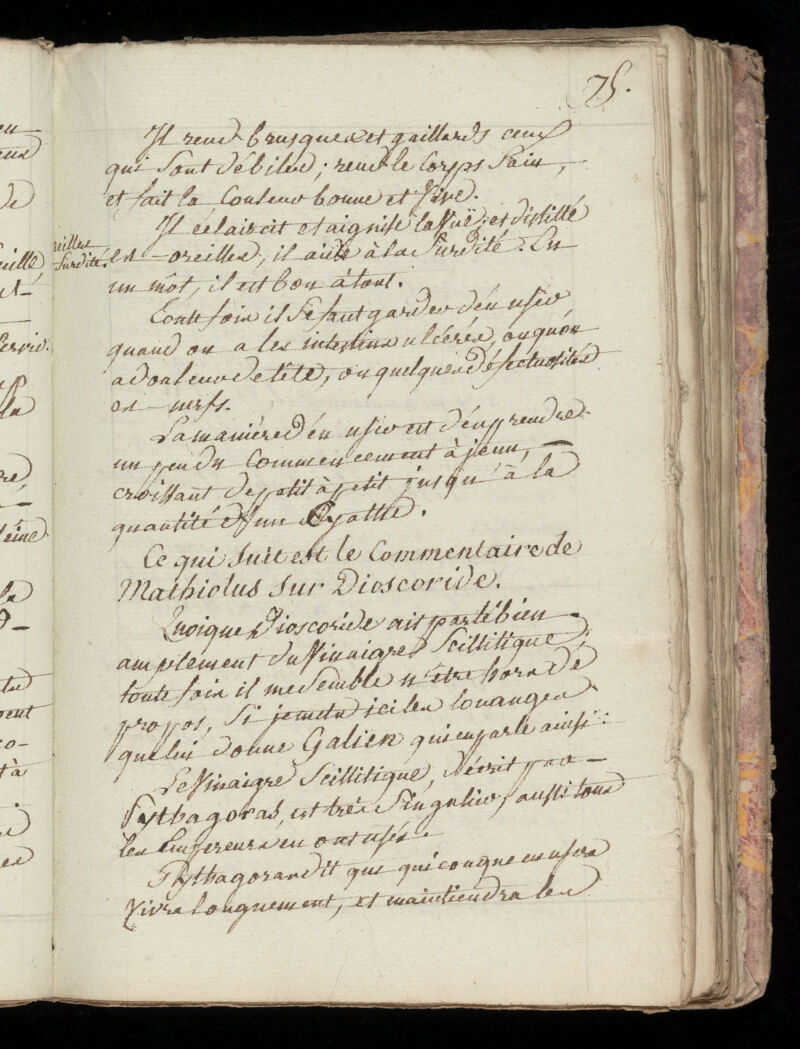 75.
Il rend brusques et gaillards ceux
qui sont débiles; rend le Corps sain,
et fait la Couleur bonne et Vive.
Il éclaircit et aiguise la Vuë; et distillé
oreilles
surdité.
es oreilles, il aide à la Surdité. En
un môt, il est bon à tout.
Toutefois il se faut garder d'en user
quand on a les intestins ulcérés, ou qu'on
a douleur de tête, ou quelques défectuosités
es nerfs.
La manière d'en user est d'en prendre
un peu du Commencement à jeun,
croissant de petit à petit jusqu'à la
quantité d'un Cyathe.
Ce qui suit est le Commentaire de
Mathiolus sur Dioscoride.
Quoique Dioscoride ait parlé bien
amplement du Vinaigre Scillitique,
toute fois il me semble n'être hors de
propos, si je mets ici les louanges
que lui donne Galien qui en parle ainsi:
Le Vinaigre Scillitique, décrit par
Pythagoras, est très Singulier; aussi tous
les Empereurs en ont usé.
Pythagoras dit que quiconque en usera
Vivra longuement, et maintiendra les